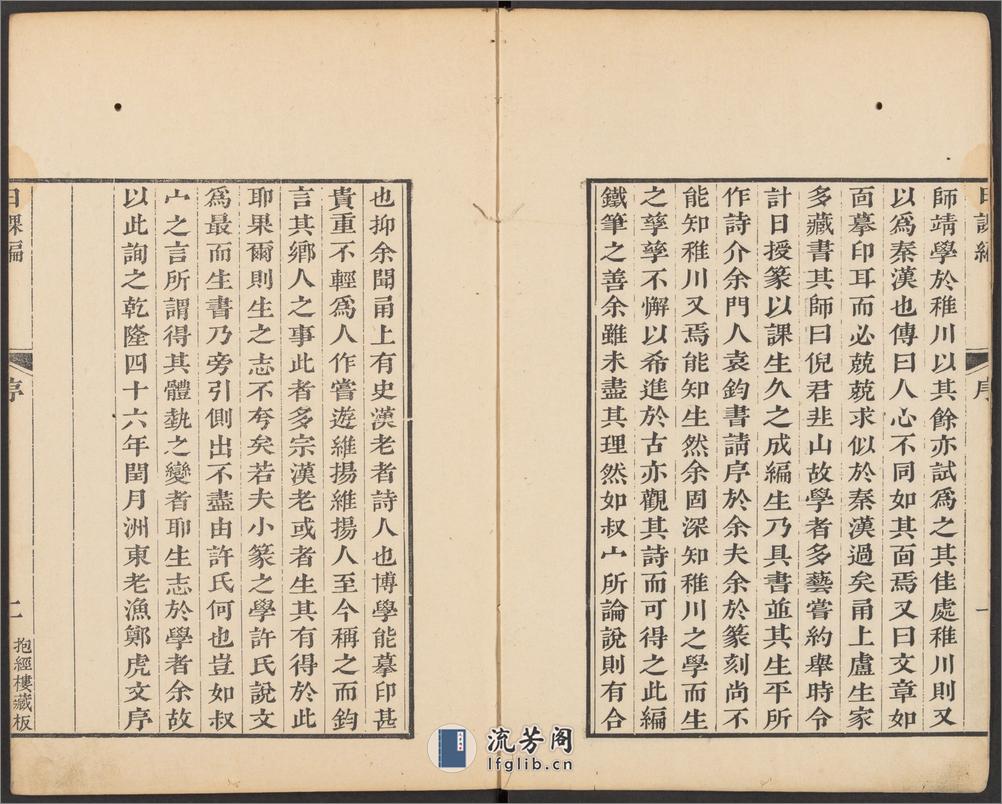 日課編
序
一
師靖學於稚川以其餘亦試爲之其佳處稚川則又
以爲秦漢也傳曰人心不同如其面焉又曰文章如
面摹印耳而必兢兢求似於秦漢過矣甬上盧生家
多藏書其師曰倪君韭山故學者多藝嘗約舉時令
計日授篆以課生久之成編生乃具書並其生平所
作詩介余門人袁鈞書請序於余夫余於篆刻尚不
能知稚川又焉能知生然余固深知稚川之學而生
之孳孳不懈以希進於古亦觀其詩而可得之此編
鐵筆之善余雖未盡其理然如叔宀所論說則有合
也抑余聞甬上有史漢老者詩人也博學能摹印甚
貴重不輕爲人作嘗遊維揚維揚人至今稱之而鈞
言其鄉人之事此者多宗漢老或者生其有得於此
耶果爾則生之志不夸矣若夫小篆之學許氏說文
爲最而生書乃旁引側出不盡由許氏何也豈如叔
宀之言所謂得其體埶之變者耶生志於學者余故
以此詢之乾隆四十六年閏月洲東老漁鄭虎文序
日課編
序
二
抱經樓藏板
流芳阁
lfglib.cn